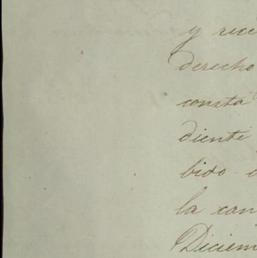 y rece
derecho
consta
diente
bido
la can
Diciem